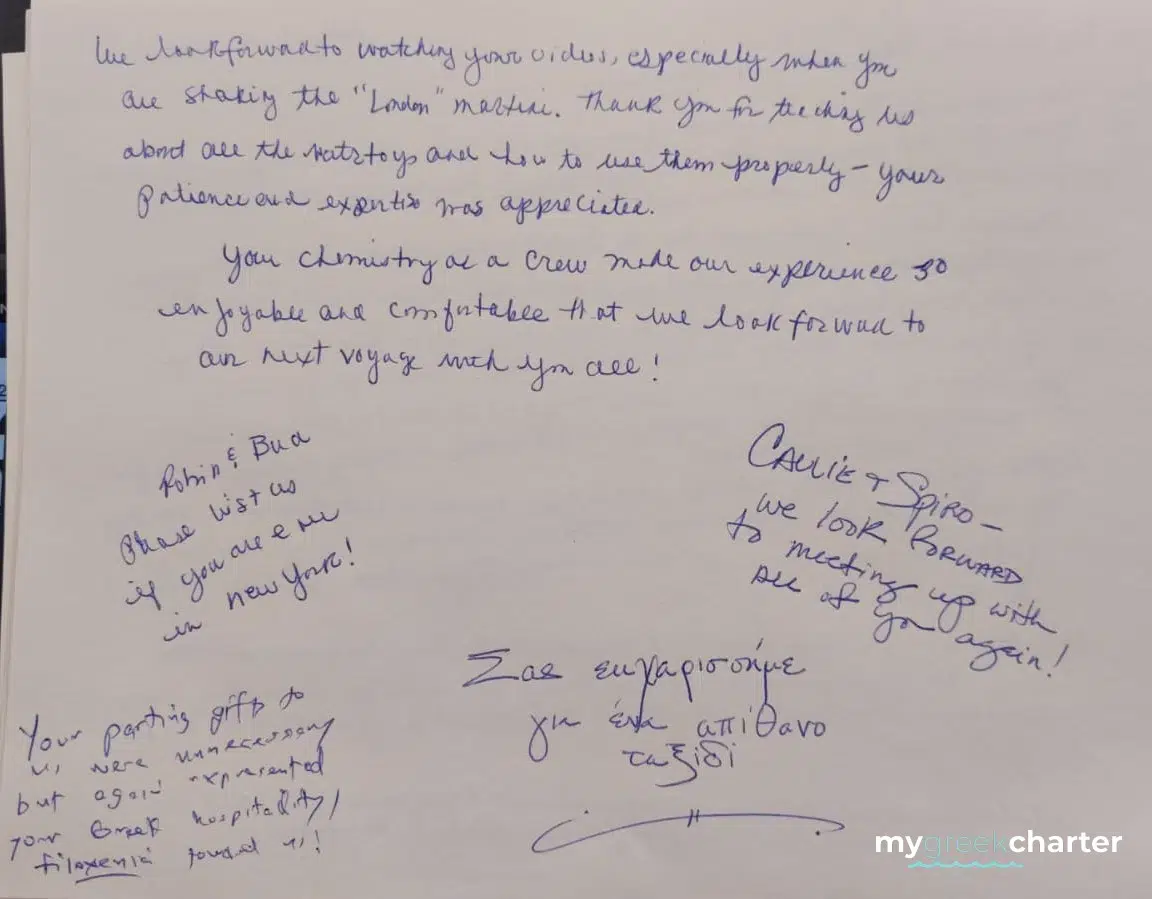 We look forward to watching your videos, especially when you
are shaking the "London" martini. Thank you for teaching us
about all the watrtoys and how to use them properly – your
patience and expertise was appreciated.
Your chemistry as a crew made our experience so
enjoyable and comfortable that we look forward to
our next voyage with you all!
Robin & Bud
Please visit us
if you are e
in new York!
CALLIE + SPIRO –
we look FORWARD
to meeting up with
ALL of you again!
Σας ευχαριστούμε
για ένα απίθανο
ταξίδι
Your parting gifts to
us were unnecessary
but again represented
your Greek hospitality/
filoxenia toward us!
mygreekcharter